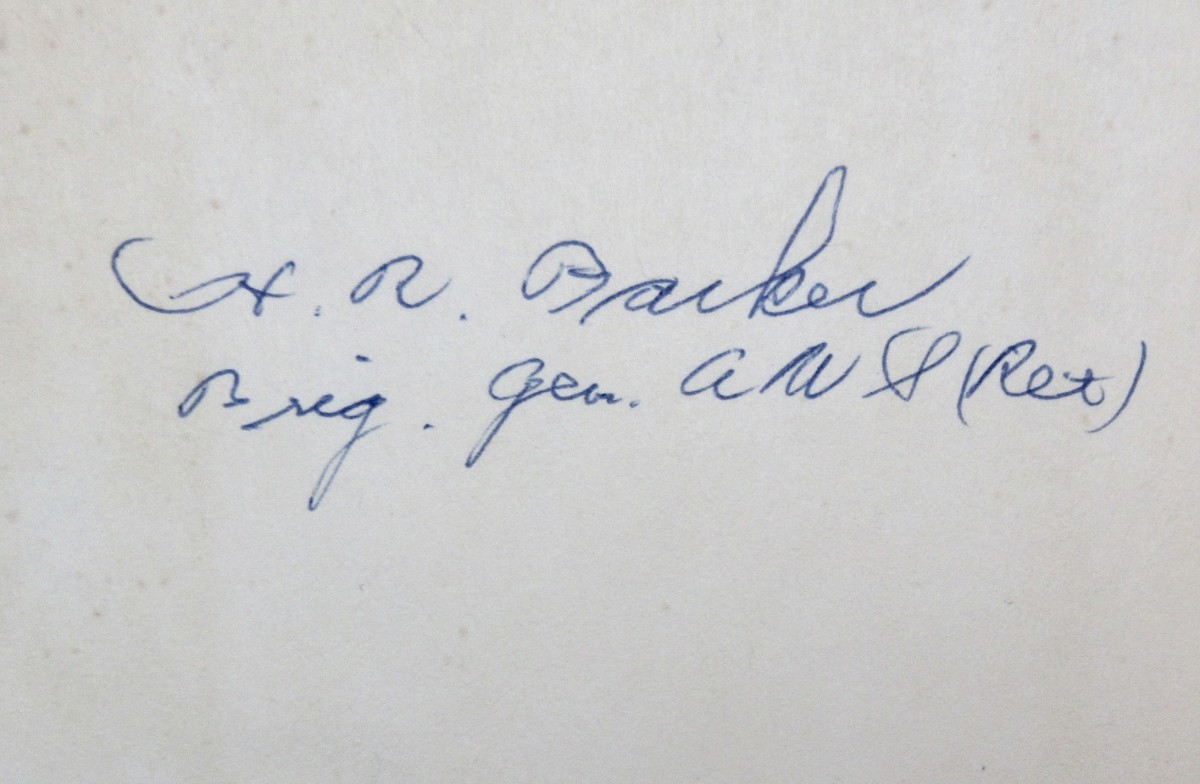 H. R. Barker
Brig. Gen. A U S (Ret)